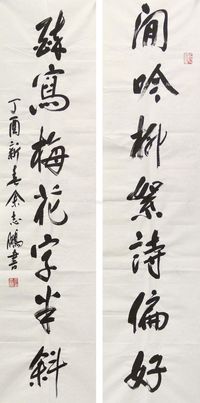 閒吟柳絮詩偏好
醉寫梅花字半斜
丁酉新春余志鵬書